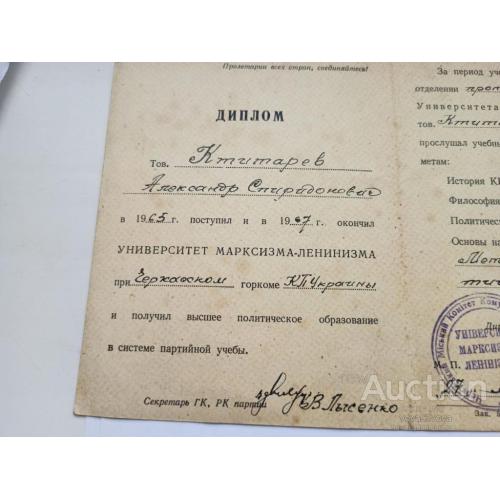 Пролетарии всех стран, соединяйтесь!
ДИПЛОМ
Тов. Ктитарев
Александр Спиридонович
в 1965 г. поступил и в 1967 г. окончил
УНИВЕРСИТЕТ МАРКСИЗМА-ЛЕНИНИЗМА
при Черкасском горкоме КП Украины
и получил высшее политическое образование
в системе партийной учебы.
Секретарь ГК, РК партии В Лысенко
За период уче
отделении
Университета
тов. Ктита
прослушал учебны
метам:
История КП
Философия
Политическ
Основы на
М. П.
Міський Комітет Кому
УНІВЕРСИ
МАРКСИЗ
ЛЕНІНІ
Зак.
Auction